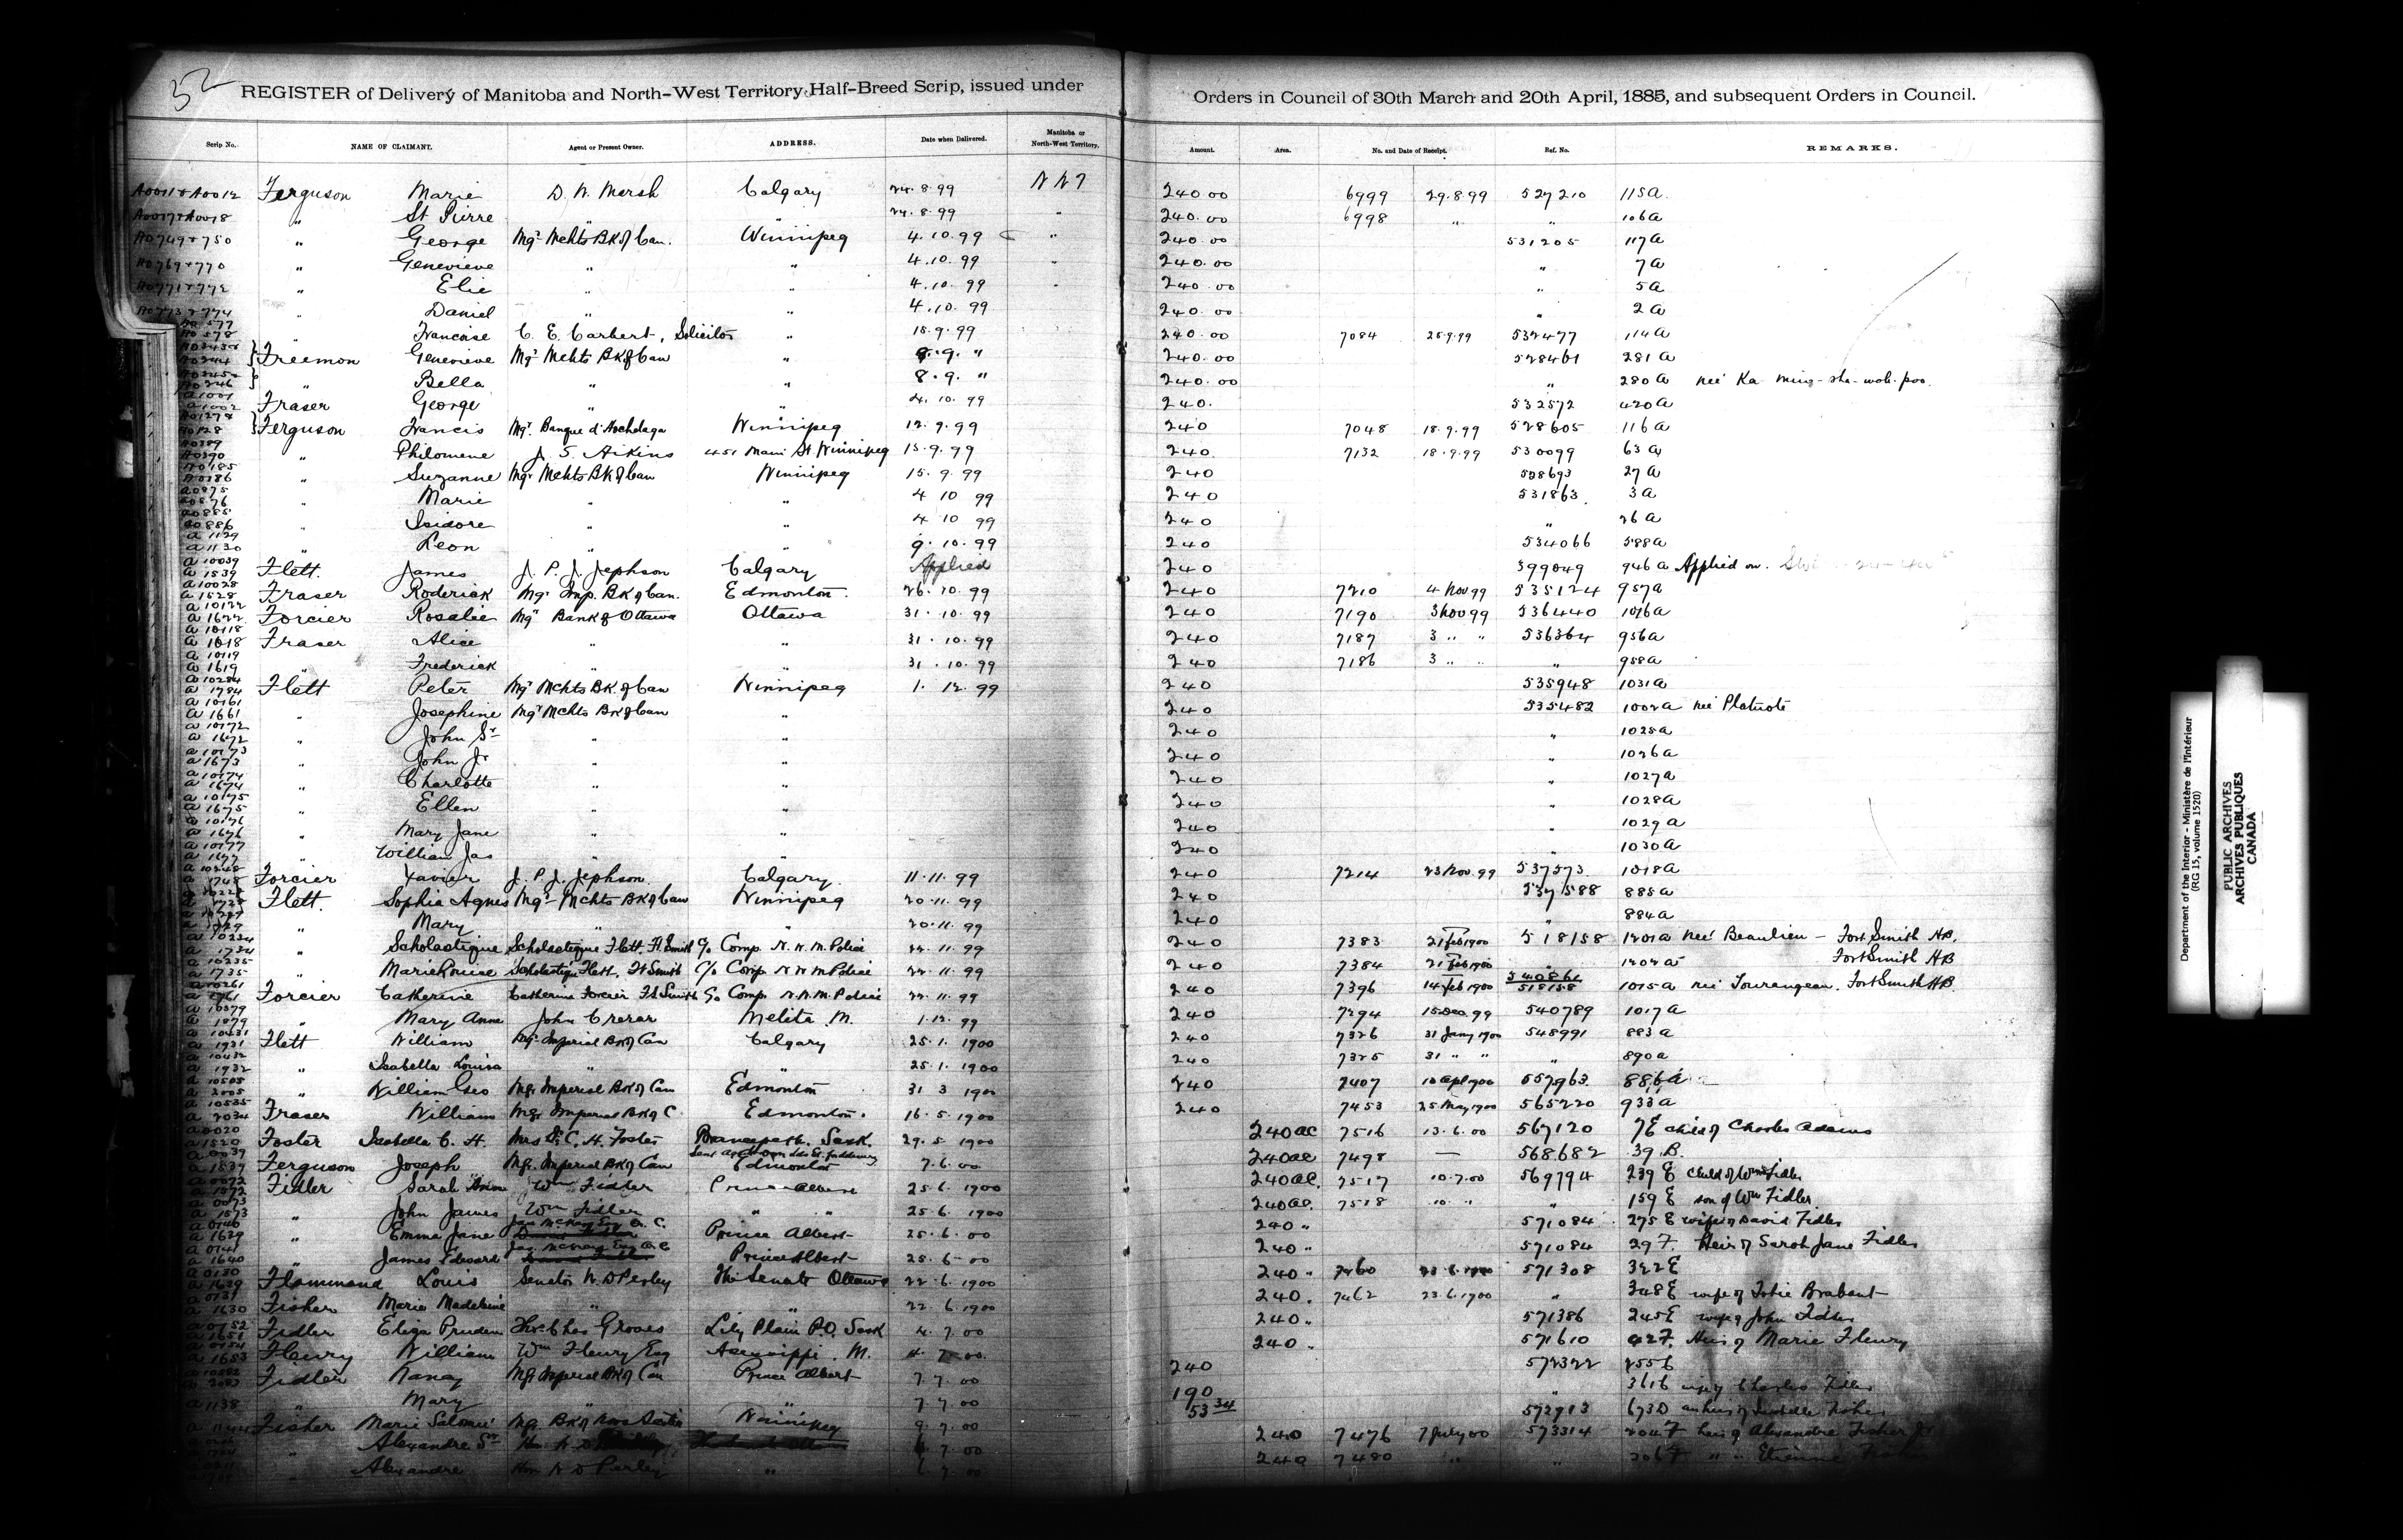 32
REGISTER of Delivery of Manitoba and North-West Territory Half-Breed Scrip, issued under Orders in Council of 30th March and 20th April, 1885, and subsequent Orders in Council.
Scrip No. NAME OF CLAIMANT. Agent or Present Owner. ADDRESS. Date when Delivered. Manitoba or North-West Territory. Amount. Area. No. and Date of Receipt. Ref. No. REMARKS.
Ferguson Marie Calgary 24.8.99 240.00 6999 29.8.99 527210 115a
" St Pierre " " 24.8.99 " 240.00 6998 " " 106a
" George Mgr Mchts BK of Can. Winnipeg 4.10.99 " 240.00 531205 117a
A0769+770 " Genevieve " " 4.10.99 " 240.00 " 7a
A0771+772 " Elie " " 4.10.99 " 240.00 " 5a
" Daniel " " 4.10.99 240.00 " 2a
" Francoise C. E. Carbert, Solicitor " 15.9.99 240.00 7084 25.9.99 532477 114a
Freemon Genevieve Mgr Mchts BK of Can " 8.9. " 240.00 528461 281a
" Bella " " 8.9. " 240.00 " 280a neé
a1001 a1002 Fraser George " " 4.10.99 240. 532572 420a
Ferguson Francis Mgr. Banque d'Hochelaga Winnipeg 12.9.99 240 7048 18.9.99 528605 116a
A0389 A0390 " Philomene J. S. Aikins 451 Main St. Winnipeg 15.9.99 240 7132 18.9.99 530099 63a
" Suzanne Mgr Mchts BK of Can Winnipeg 15.9.99 240 528693 27a
a0875 a0876 " Marie " " 4 10 99 240 531863 3a
a0885 a0886 " Isidore " " 4 10 99 240 " 26a
a1129 a1130 " Leon " " 9.10.99 240 534066 588a
a10039 a1539 Flett. James J. P. J. Jephson Calgary Applied 240 399049 946a Applied on.
a10028 a1528 Fraser Roderick Mgr Imp. BK of Can. Edmonton 26.10.99 240 7210 4 Nov 99 535124 957a
a10122 a1622 Forcier Rosalie Mgr Bank of Ottawa Ottawa 31.10.99 240 7190 3 Nov 99 536440 1016a
a10118 a1618 Fraser Alice " " 31.10.99 240 7187 3 " " 536364 956a
a10119 a1619 " Frederick " " 31.10.99 240 7186 3 " " " 958a
a10284 a1784 Flett Peter Mgr Mchts BK. of Can Winnipeg 1.12.99 240 535948 1031a
a10161 a1661 " Josephine Mgr Mchts BK of Can " 240 535482 1002a neé Platnote
a10172 a1672 " John Sr " " 240 " 1025a
a10173 a1673 " John Jr " " 240 " 1026a
a10174 a1674 " Charlotte " " 240 " 1027a
a10175 a1675 " Ellen " " 240 " 1028a
a10176 a1676 " Mary Jane " " 240 " 1029a
a10177 a1677 " William Jas " " 240 " 1030a
a10248 a1748 Forcier Xavier J. P. J. Jephson Calgary. 11.11.99 240 7214 23 Nov. 99 537573 1018a
Flett. Sophia Agnes Mgr Mchts BK of Can Winnipeg 20.11.99 240 537588 885a
" Mary " " 20.11.99 240 " 884a
a10234 a1734 " Scholastique Scholastique Flett. Ft. Smith c/o Comp. N.W.M. Police 22.11.99 240 7383 21 Feb 1900 518158 1201a neé Beaulieu - Fort Smith HB.
a10235 a1735 " Marie Louise Scholastique Flett. Ft Smith c/o Comp. N W M Police 22.11.99 240 7384 21 Feb 1900 " 1202a Fort Smith HB
a10261 a1761 Forcier Catherine Catherine Forcier Ft Smith c/o Comp. N.W.M. Police 22.11.99 240 7396 14 Feb 1900 540861 518158 1015a neé Tourangeau. Fort Smith HB.
a10379 a1879 " Mary Anne John Crerar Melita M. 1.12.99 240 7294 15 Dec. 99 540789 1017a
a10431 a1931 Flett William Mgr Imperial BK of Can Calgary 25.1.1900 240 7326 31 Jany 1900 548991 883a
a10432 a1932 " Isabella Louisa " " 25.1.1900 240 7325 31 " " " 890a
a10505 a2005 " William Geo Mgr Imperial BK of Can Edmonton 31 3 1900 240 7407 10 Apl 1900 557963 886a
a10535 a2034 Fraser William Mgr Imperial BK of C Edmonton. 16.5.1900 240 7453 25 May 1900 565220 933a
a0020 a1520 Foster Isabella C. H. Mrs C. H. Foster Sask. 29.5 1900 240 ac 7516 13.6.00 567120 7E child of Charles Adams
a0037 a1537 Ferguson Joseph Mgr. Imperial BK of Can Edmonton 7.6.00 240 ac 7498 — 568682 39 B.
a0072 a1572 Fidler Sarah Ann Wm Fidler Prince Albert 25.6.1900 240 ac. 7517 10.7.00 569794 239 E child of Wm Fidler
a0073 a1573 " John James Wm Fidler " " 25.6.1900 240 ac. 7518 10. " " 159 E son of Wm Fidler
" Emma Jane Jas McKay Esq Q. C. Prince Albert 25.6.00 240 " 571084 275 E wife of David Fidler
a1640 " James Edward Jas McKay Esq Q. C Prince Albert 25.6.00 240 " 571084 29 F. Heir of Sarah Jane Fidler
a0130 Flammand Louis Senator W. D Perley The Senate Ottawa 22.6.1900 240 " 7460 23.6.1900 571308 322E
a1630 Fisher Marie Madeleine " " 22.6.1900 240. 7462 23.6.1900 " 348E wife of Tobie Brabant
a0152 a1651 Fidler Eliza Pruden Chas Groves Lily Plain P.O. Sask 4.7.00 240 " 571386 245E wife of John Fidler
a0154 a1653 Fleury William Wm Fleury Esq Assessippi. M. 4.7.00. 240 " 571610 42F. Heir of Marie Fleury
Fidler Nancy Mgr Imperial BK of Can Prince Albert 7.7.00 240 572322
" Mary " " 7 7.00 190 " wife of Charles Fidler
Fisher Marie Salomé Mgr BK of Nova Scotia Winnipeg 9.7.00 53 34 572913 673D
" Alexandre Sr 7.00 240 7476 7 July 00 573314 204F heir of Alexandre Fisher Jr
" Alexandre Hon W D Perley " 7.00 240 7480 " " 206F " " Etienne Fisher
Department of the Interior - Ministère de l'Intérieur
(RG 15, volume 1520)
PUBLIC ARCHIVES
ARCHIVES PUBLIQUES
CANADA